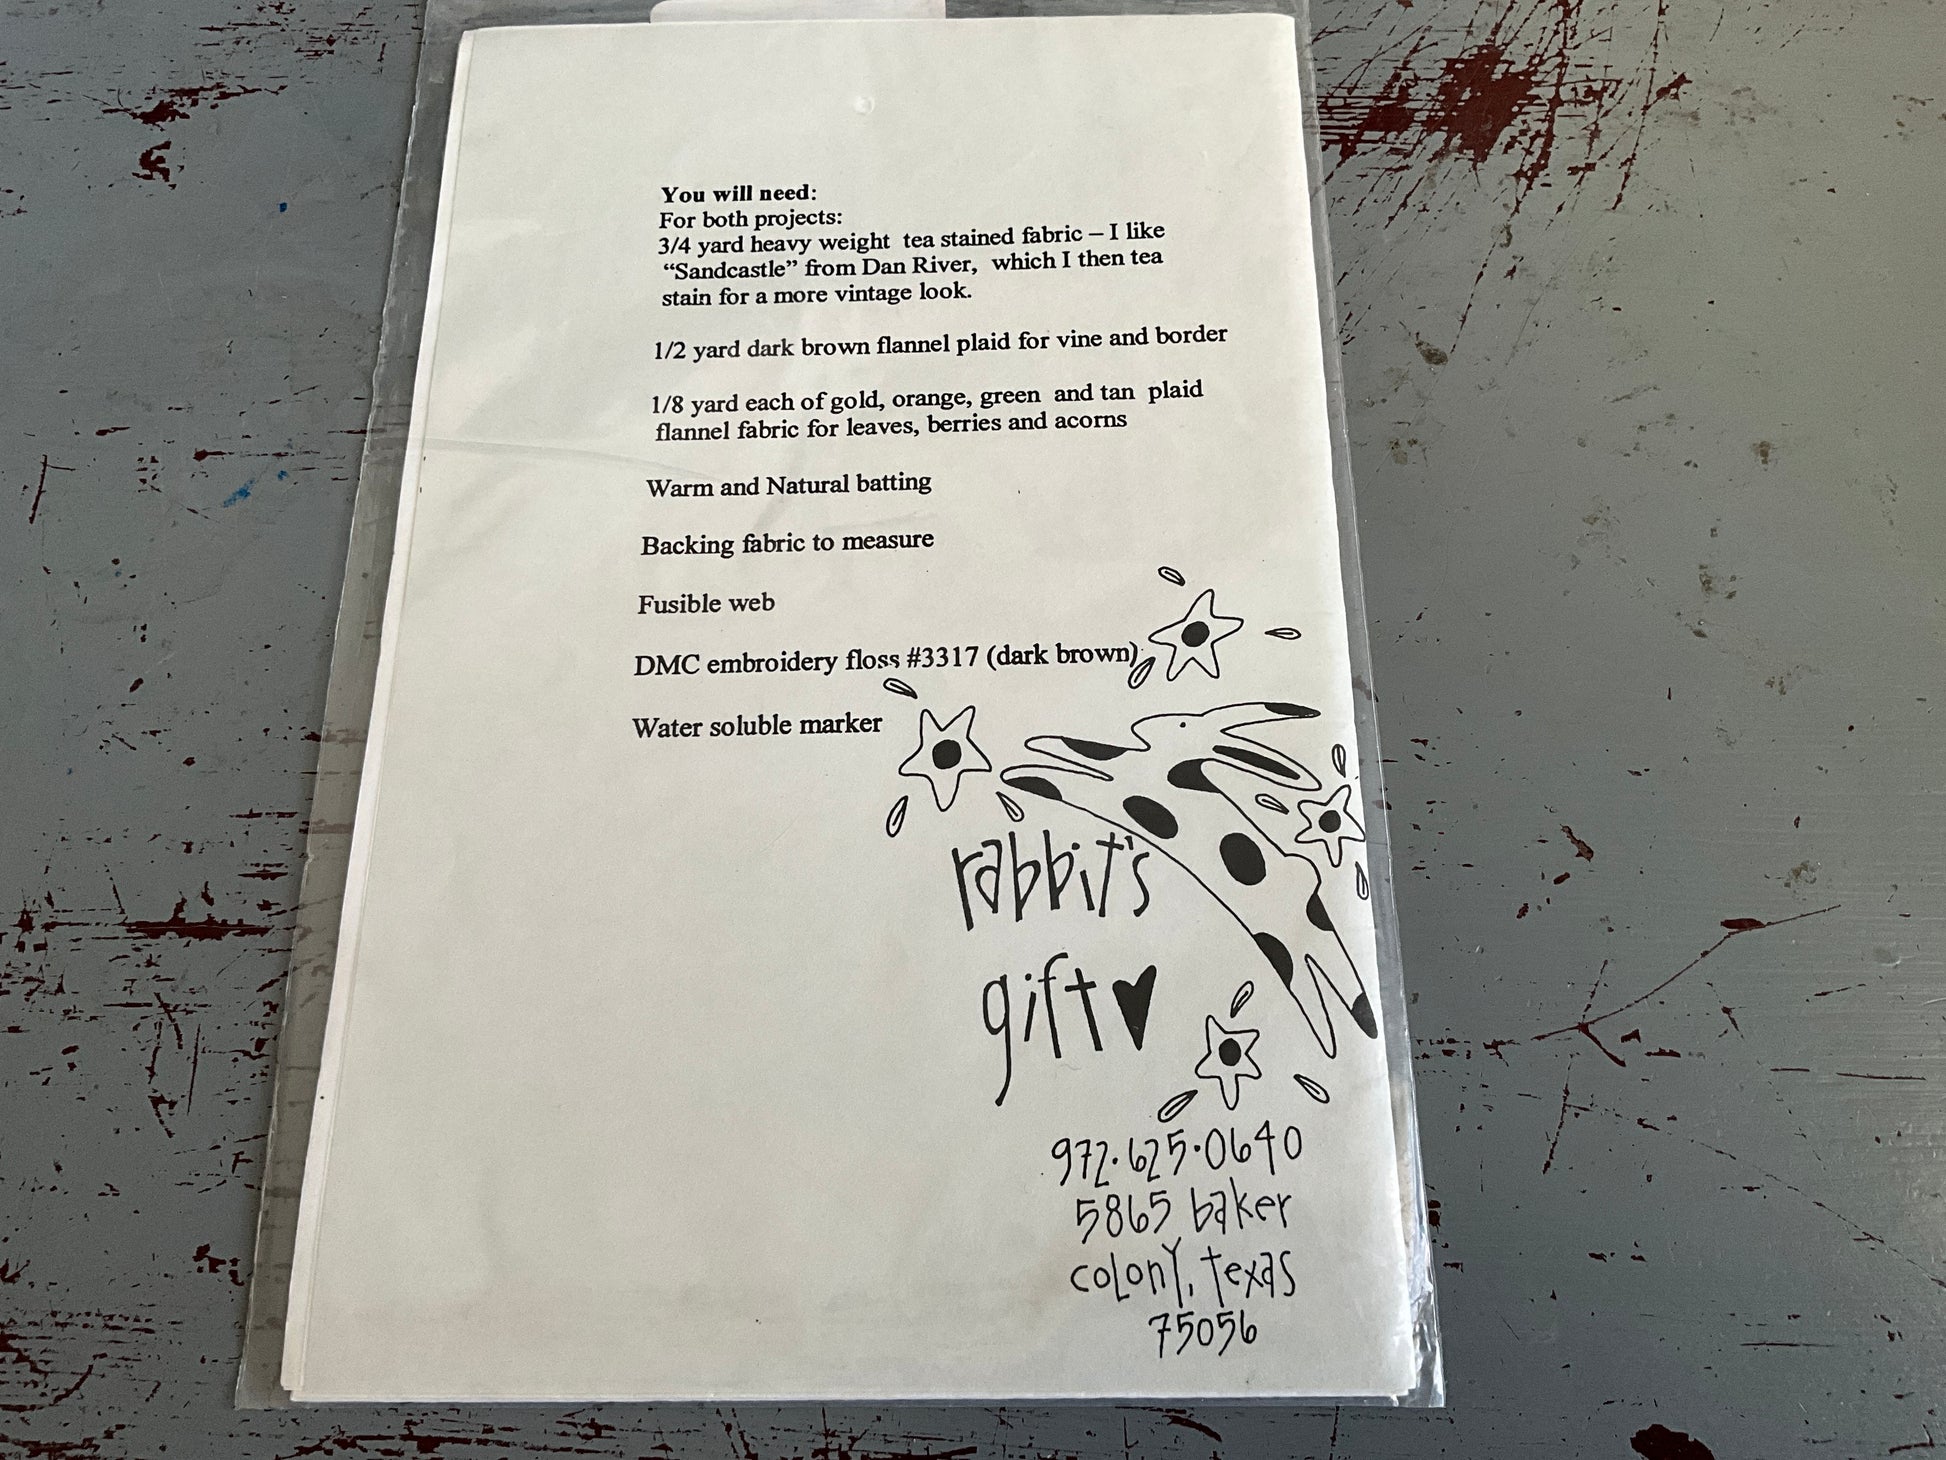 You will need:
For both projects:
3/4 yard heavy weight tea stained fabric – I like
“Sandcastle” from Dan River, which I then tea
stain for a more vintage look.
1/2 yard dark brown flannel plaid for vine and border
1/8 yard each of gold, orange, green and tan plaid
flannel fabric for leaves, berries and acorns
Warm and Natural batting
Backing fabric to measure
Fusible web
DMC embroidery floss #3317 (dark brown)
Water soluble marker
rabbit's
gift
972.625.0640
5865 baker
colony, texas
75056